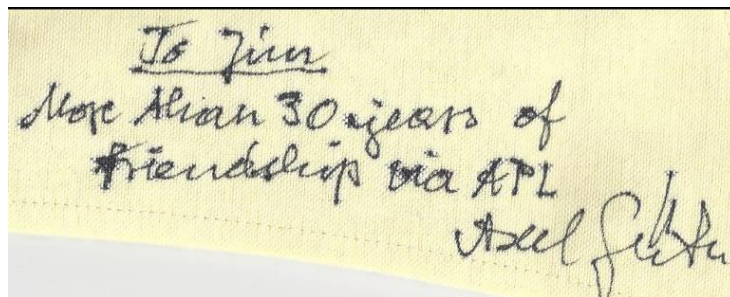 To Jim
More than 30 years of
friendship via APL
Axel